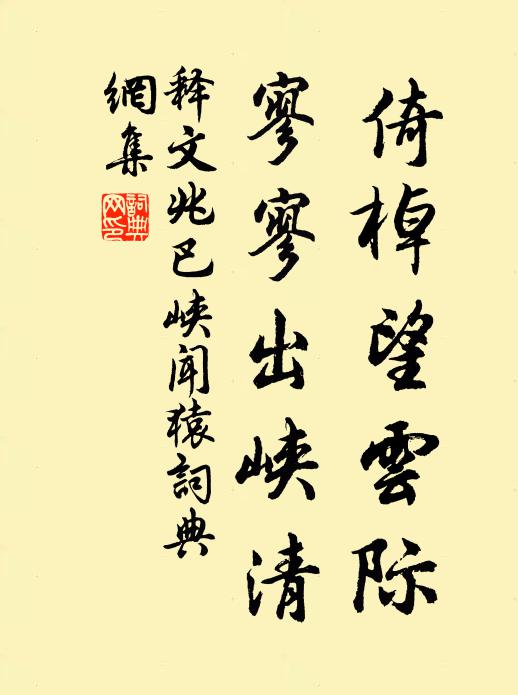 倚棹望雲际
寥寥出峡清
释文兆巴峡闻猿詞典
網集
詞典
网印